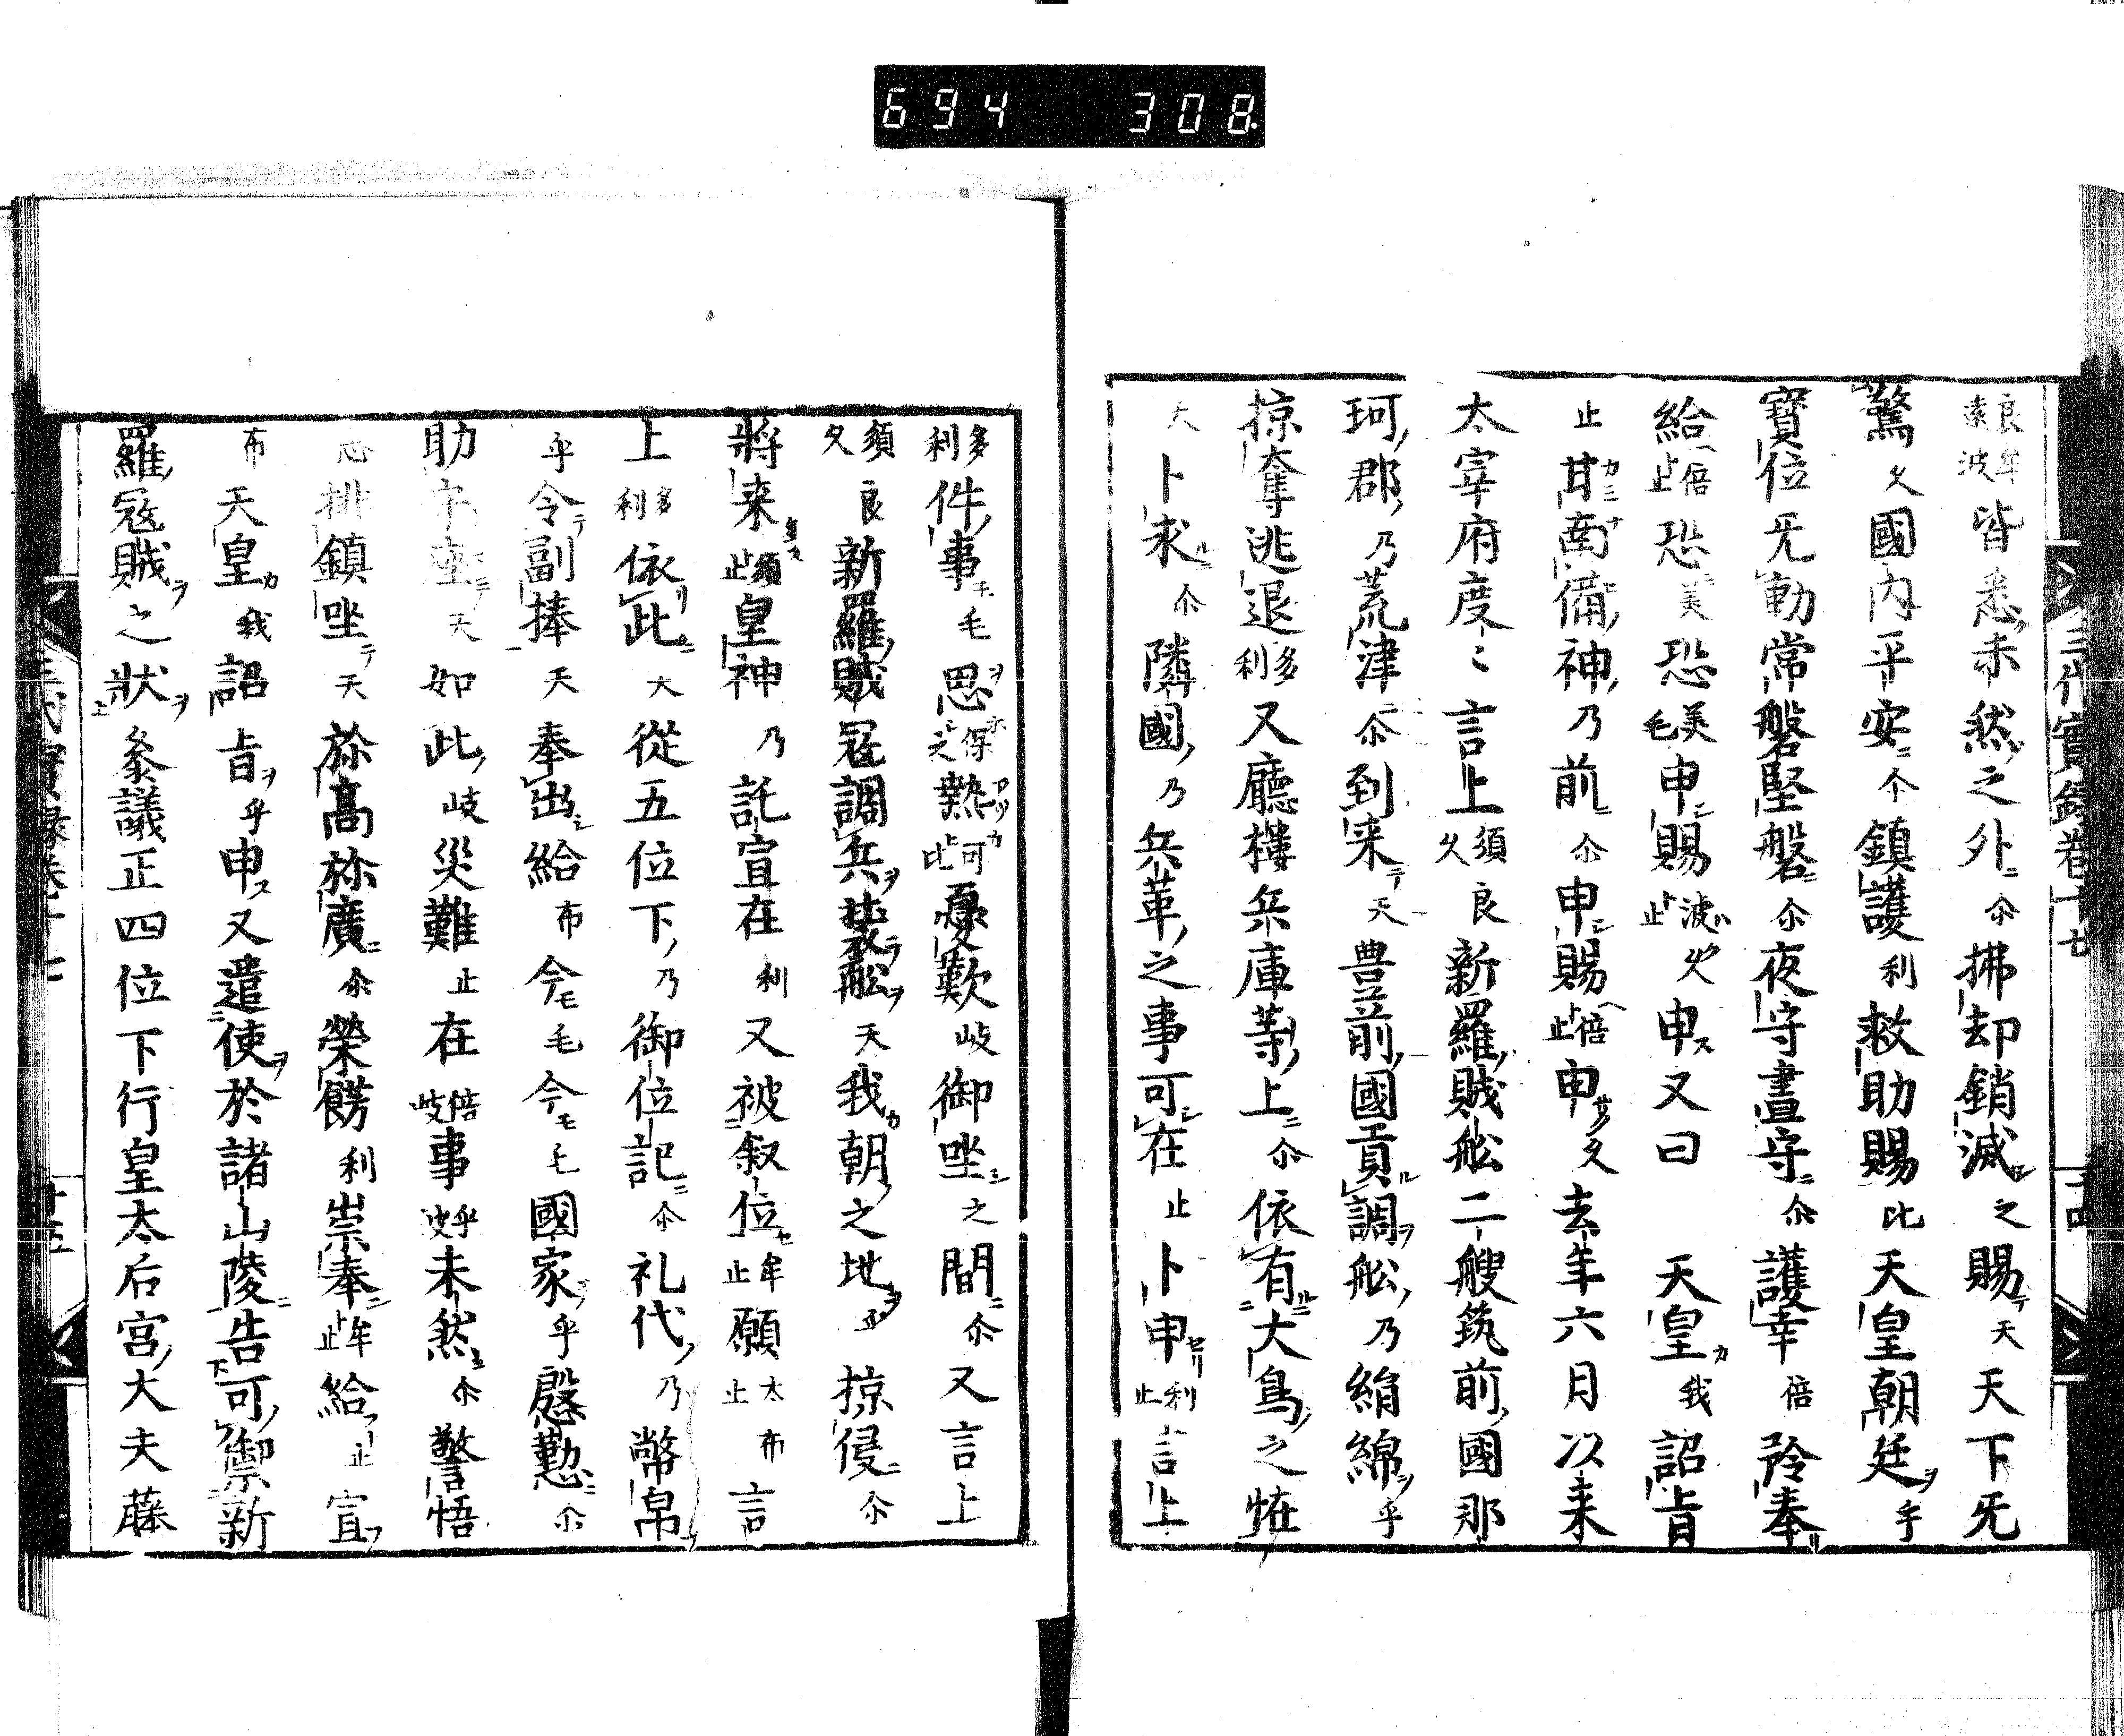 694 308
三代實録卷十七
十四
良牟遠波皆悉未然之外尓拂却銷滅之賜天天下无
驚久國内平安尓鎮護利救助賜比天皇朝廷乎
寳位无動常磐堅磐尓夜守晝守尓護幸倍矜奉
給倍止恐美恐美毛申賜波久止申又曰天皇我詔旨
止甘南備神乃前尓申賜倍止申久去年六月以来
太宰府度々言上須良久新羅賊舩二艘筑前國那
珂郡乃荒津尓到来天豊前國貢調舩乃絹綿乎
掠奪逃退多利又廳樓兵庫等上尓依有大鳥之恠
天卜求尓隣國乃兵革之事可在止卜申利止言上
多利件事毛思保之天熱可比憂歎岐御坐之間尓又言上
須良久新羅賊冦調兵裝舩天我朝之地乎掠侵尓
將来須止皇神乃託宣在利又被叙位牟止願太布止言
上多利依此天從五位下乃御位記尓礼代乃幣帛
乎令副捧天奉出給布今毛今毛國家乎慇懃尓
助守坐天如此岐災難止在倍岐事乎波未然尓警悟
志排鎮坐天於高於廣尓榮餝利崇奉牟止給止宣
布天皇我詔旨乎申又遣使於諸山陵告可禦新
羅冦賊之狀叅議正四位下行皇太后宮大夫藤
三代實録卷十七
十五